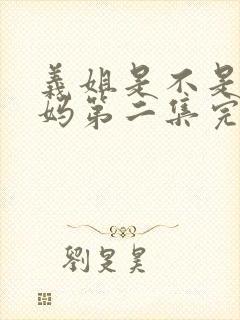 義姐是不是
妈第二集完
劉旻昊